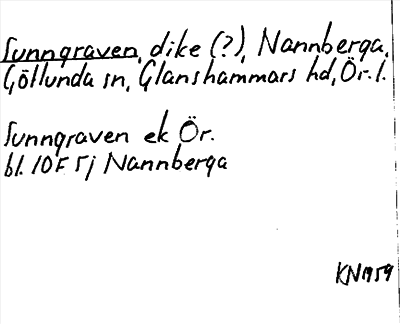 Sunngraven, dike (?), Nannberga,
Götlunda sn, Glanshammars hd, Ör. l.
Sunngraven ek Ör.
bl. 10F 5j Nannberga
KN 1959